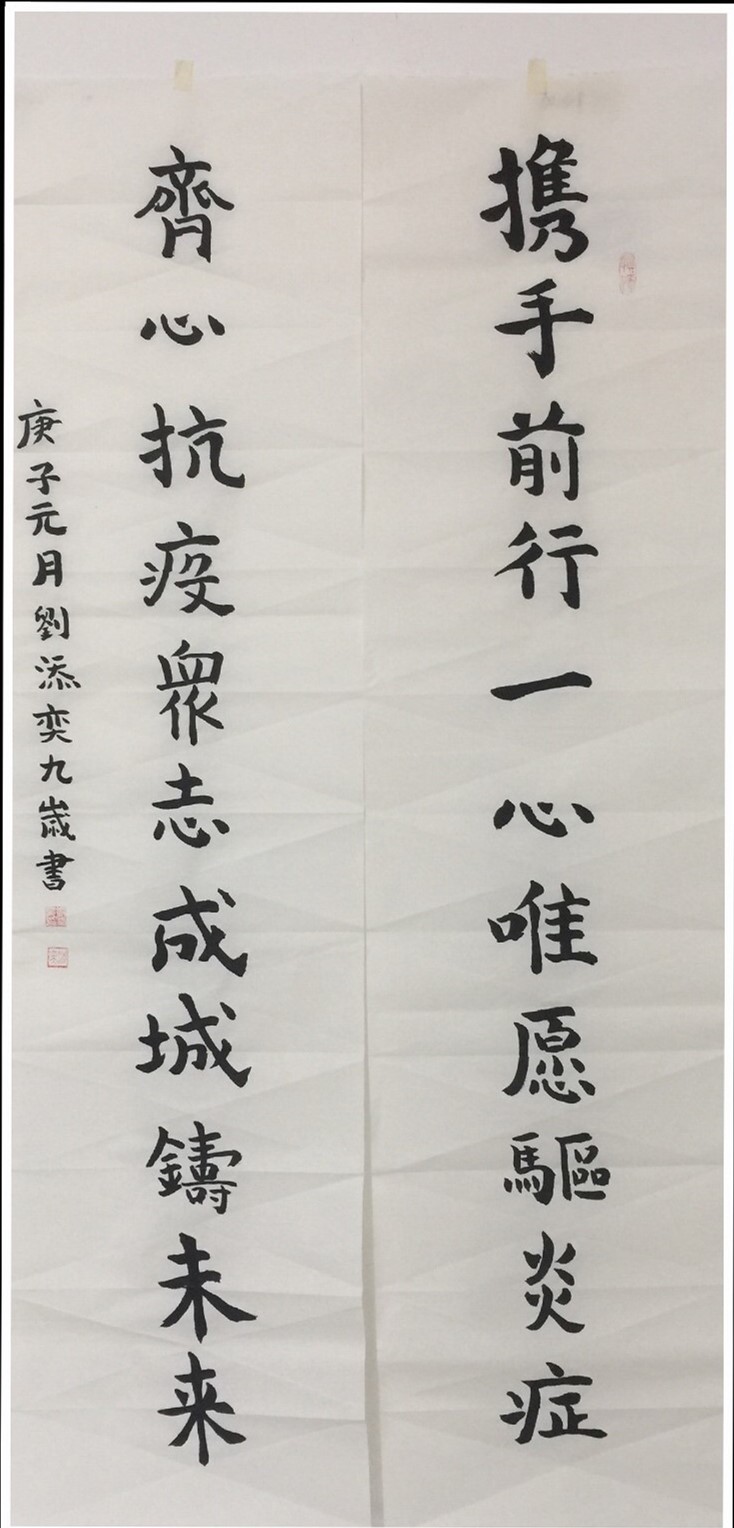 携手前行一心唯愿驅炎症
齊心抗疫衆志成城鑄未来
庚子元月劉添奕九歲書